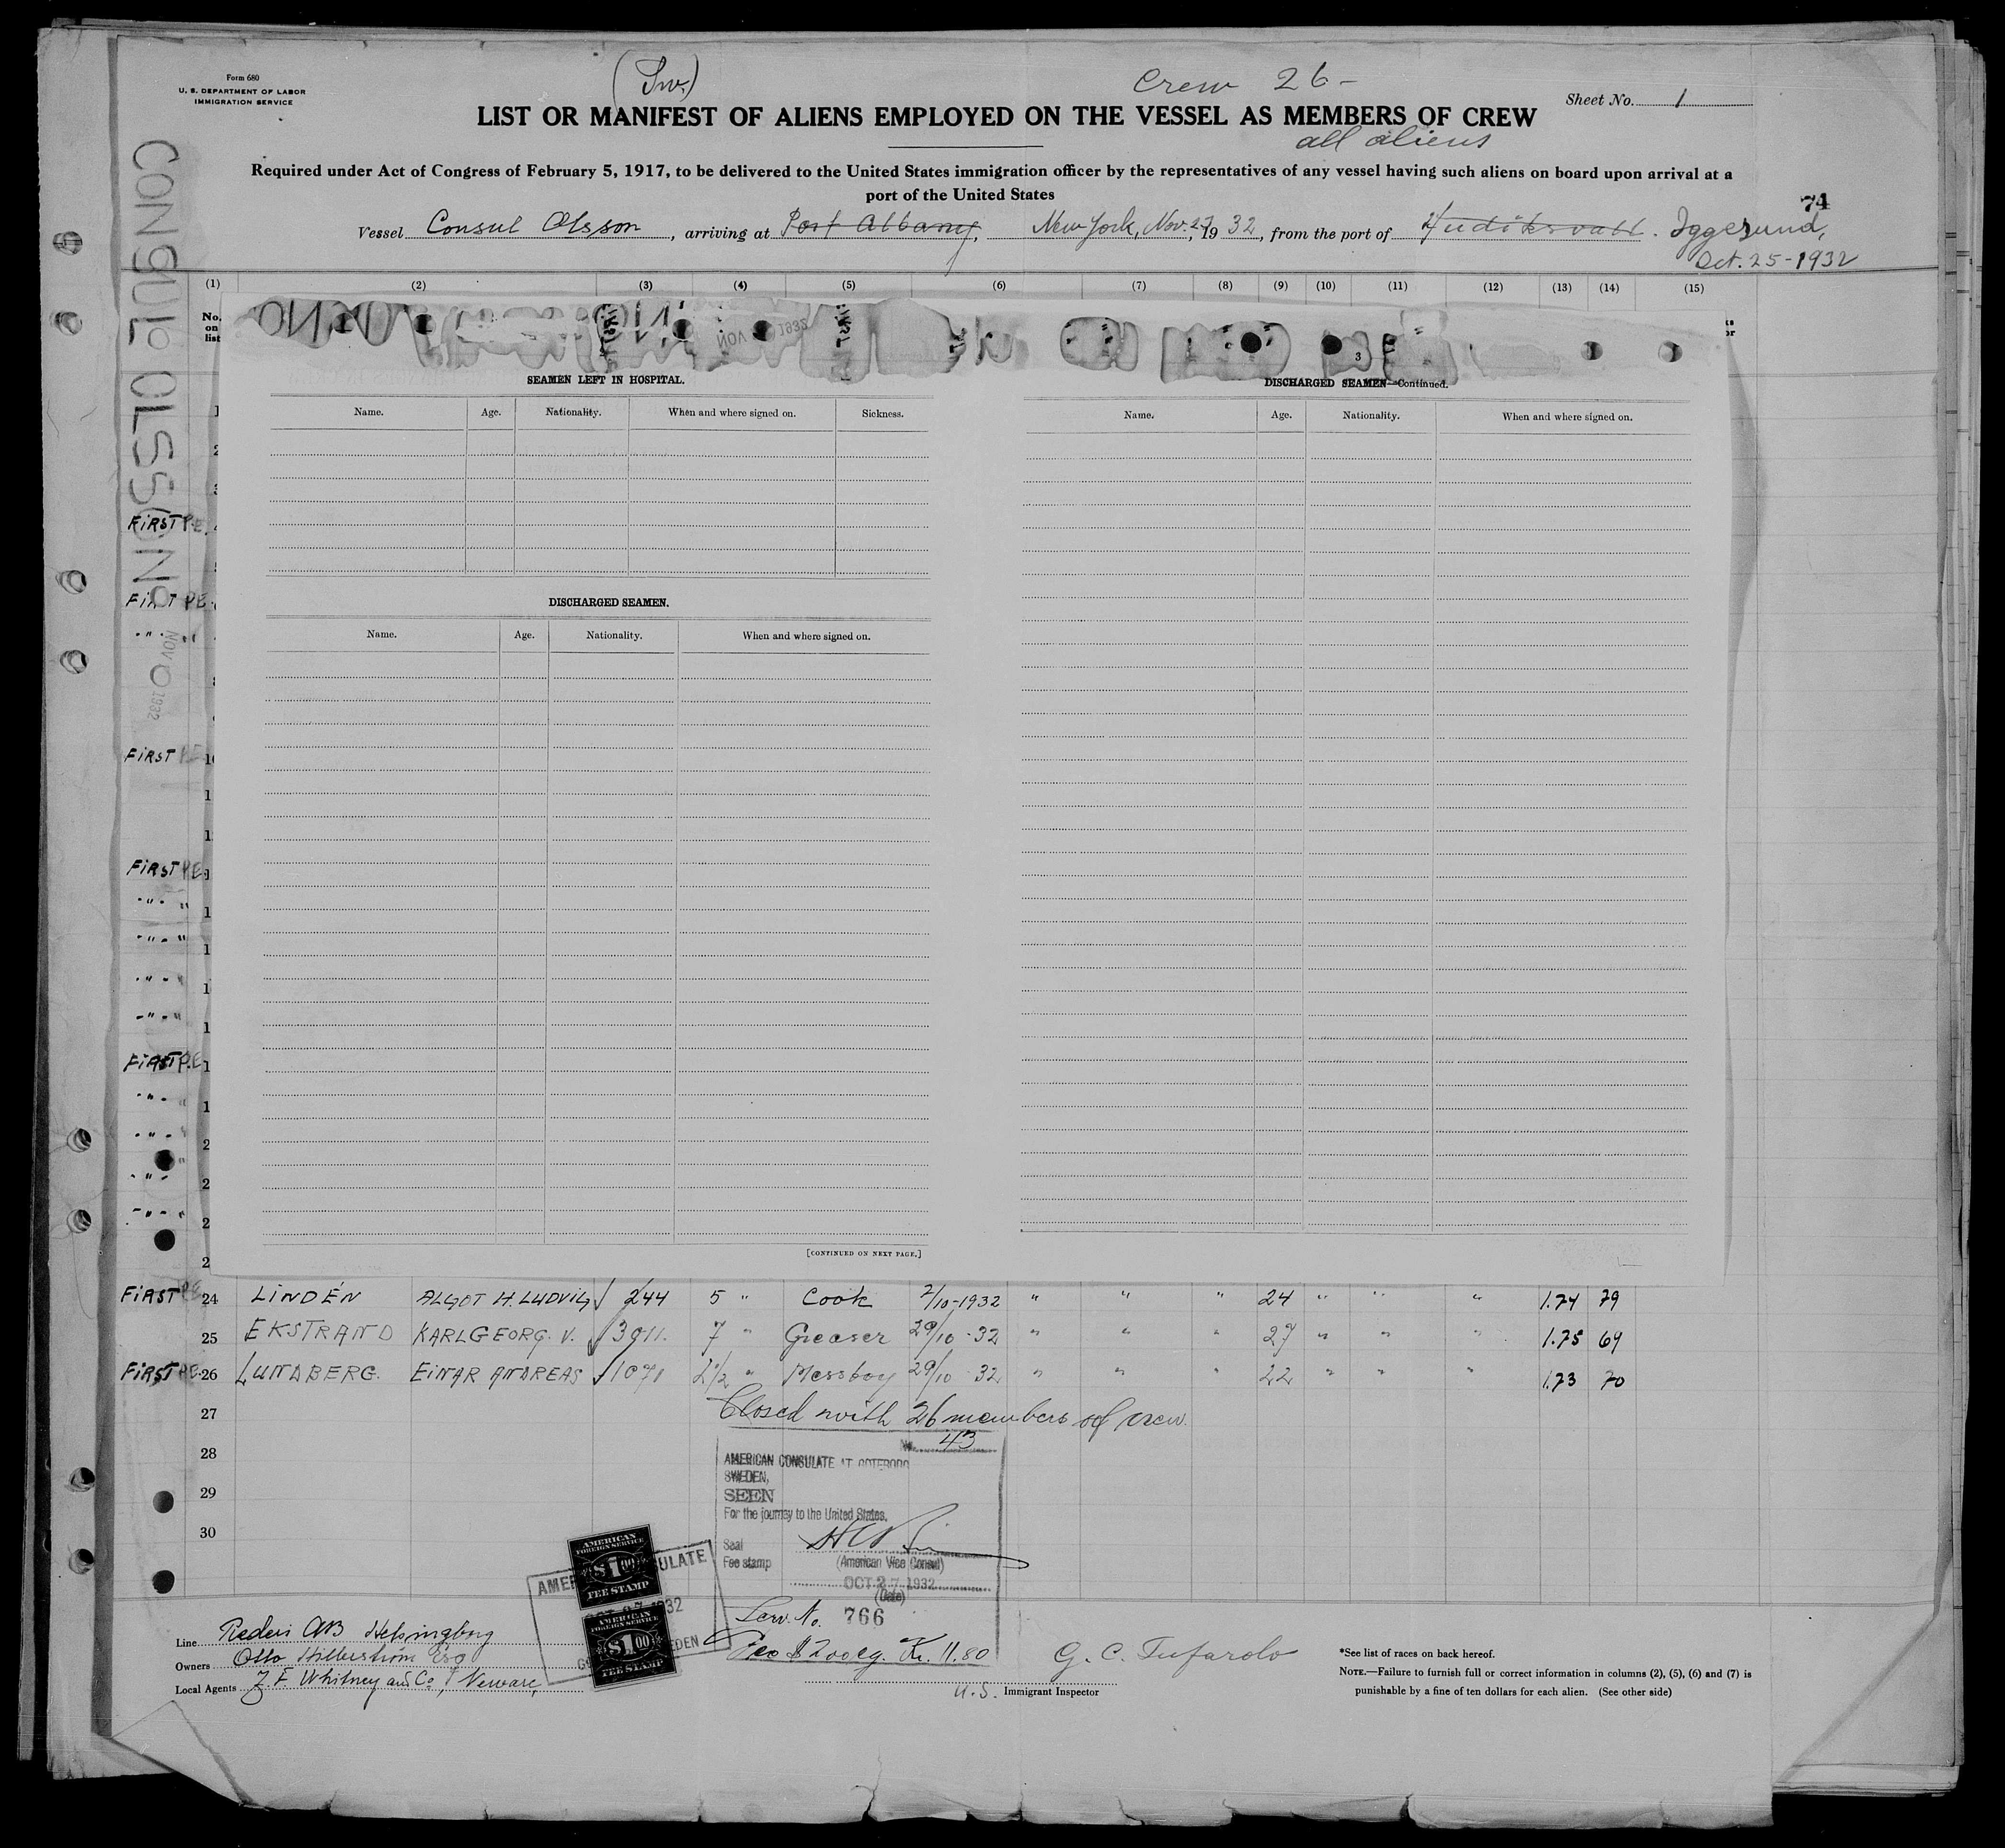 Form 680
U. S. DEPARTMENT OF LABOR
IMMIGRATION SERVICE
(Sw.)
Crew 26-
Sheet No. 1
LIST OR MANIFEST OF ALIENS EMPLOYED ON THE VESSEL AS MEMBERS OF CREW
all aliens
Required under Act of Congress of February 5, 1917, to be delivered to the United States immigration officer by the representatives of any vessel having such aliens on board upon arrival at a
port of the United States
74
Vessel Consul Olsson, arriving at Port Albany, New York, Nov. 27, 1932, from the port of Hudiksvall. Iggesund,
Oct. 25-1932
(1) (2) (3) (4) (5) (6) (7) (8) (9) (10) (11) (12) (13) (14) (15)
No.
on
list
CONSUL OLSSON
NOV 1932
NOV 1932
3
SEAMEN LEFT IN HOSPITAL.
Name. Age. Nationality. When and where signed on. Sickness.
DISCHARGED SEAMEN.
Name. Age. Nationality. When and where signed on.
[CONTINUED ON NEXT PAGE.]
DISCHARGED SEAMEN—Continued.
Name. Age. Nationality. When and where signed on.
FIRST P.E.
FIRST P.E.
" "
FIRST P.E.
FIRST P.E.
" "
" "
" "
" "
FIRST P.E.
" "
" "
" "
" "
FIRST P.E. 24 LINDÉN ALGOT H. LUDVIG √ 244 5 " Cook 7/10-1932 " " " 24 " " " 1.74 79
25 EKSTRAND KARL GEORG. V. √ 3911. 7 " Greaser 29/10-32 " " " 27 " " " 1.75 69
FIRST P.E. 26 LUNDBERG. EINAR ANDREAS √ 1071 2 1/2 " Messboy 29/10 32 " " " 22 " " " 1.73 70
27 Closed with 26 members of crew.
28
29
30
No. 43
AMERICAN CONSULATE AT GOTEBORG
SWEDEN,
SEEN
For the journey to the United States.
Seal
Fee stamp
(American Vice Consul)
OCT 27 1932
(Date)
AMERICAN
FOREIGN SERVICE
$1.00
FEE STAMP
AMERICAN
FOREIGN SERVICE
$1.00
FEE STAMP
Serv. No. 766
Fee $2.00 eq. Kr. 11.80
Line Rederi AB Helsingborg
Owners Otto Hillerström Esq
Local Agents F. F. Whitney and Co,
G. C. Tufarolo
U.S. Immigrant Inspector
*See list of races on back hereof.
NOTE.—Failure to furnish full or correct information in columns (2), (5), (6) and (7) is
punishable by a fine of ten dollars for each alien. (See other side)